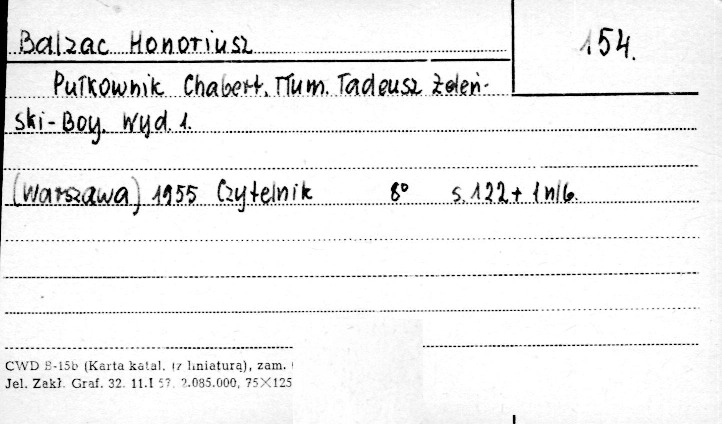 Balzac Honoriusz
154.
Pułkownik Chabert. Tłum. Tadeusz Żeleń-
ski-Boy. Wyd. 1.
(Warszawa) 1955 Czytelnik 8° s. 122 + 1 nlb.
CWD B-15b (Karta katal. (z liniaturą), zam.
Jel. Zakł. Graf. 32. 11.I 57. 2.085.000, 75×125